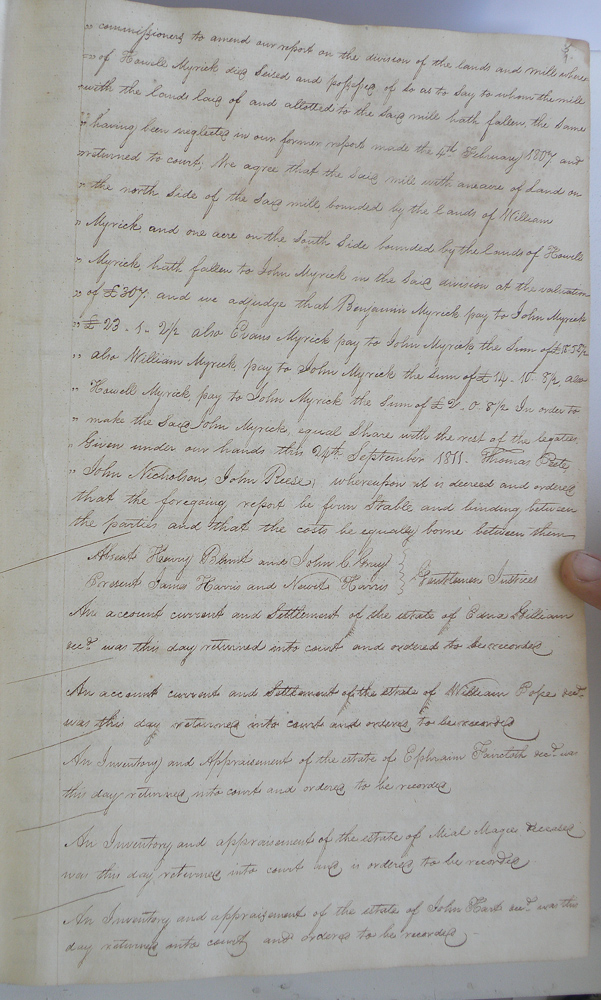 " commissioners to amend our report on the division of the lands and mill where
" of Howell Myrick died Seised and possessed of so as to Say to whom the mill
" with the lands laid of and allotted to the said mill hath fallen, the Same
" having been neglected in our former report made the 4th February 1807 and
" returned to court, We agree that the said mill with one acre of Land on
" the north Side of the Said mill bounded by the Lands of William
" Myrick and one acre on the South Side bounded by the Lands of Howell
" Myrick, hath fallen to John Myrick in the Said division at the valuation
" of £307. and we adjudge that Benjamin Myrick pay to John Myrick
" £ 23 - 1 - 2½ also Evans Myrick pay to John Myrick, the Sum of
" also William Myrick, pay to John Myrick the sum of £ 14 - 10 - 8½ also
" Howell Myrick, pay to John Myrick the Sum of £ 2 . 0 . 8½ In order to
" make the Said John Myrick, equal Share with the rest of the legatees.
" Given under our hands this 24th September 1811. Thomas Pete,
" John Nicholson, John Reese, whereupon it is decreed and ordered
that the foregoing report be firm Stable and binding between
the parties and that the costs be equally borne between them
Absent Henry and John C Gray
Present James Harris and Newit Harris } Gentlemen Justices
An account current and Settlement of the estate of Edna Gilliam
decd. was this day returned into court and ordered to be recorded
An account current and Settlement of the estate of William Pope decd.
was this day returned into court and ordered to be recorded
An Inventory and Appraisement of the estate of Ephraim decd. was
this day returned into court and ordered to be recorded
An Inventory and appraisement of the estate of Mial Magee deceased
was this day returned into court and is ordered to be recorded
An Inventory and appraisement of the estate of John Hart decd. was this
day returned into court and ordered to be recorded